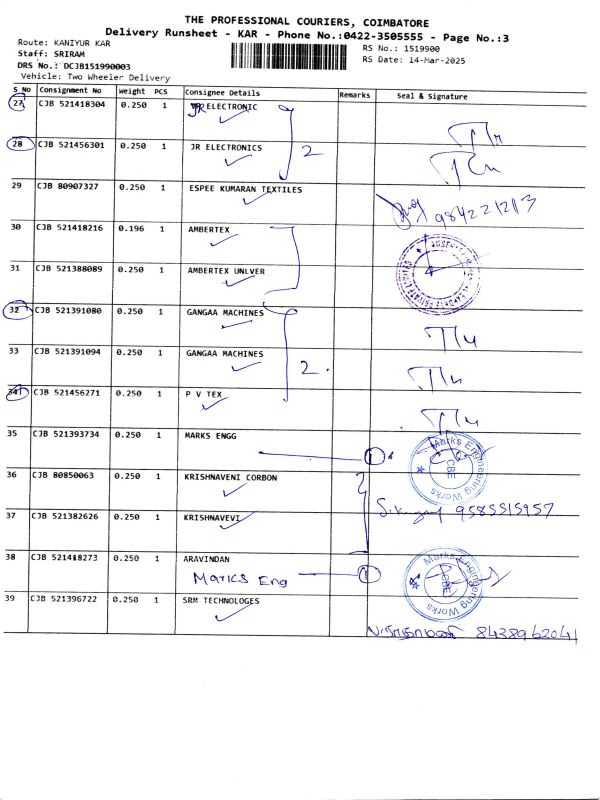 THE PROFESSIONAL COURIERS, COIMBATORE
Delivery Runsheet - KAR - Phone No.:0422-3505555 - Page No.:3
Route: KANIYUR KAR
Staff: SRIRAM
DRS No.: DCJB151990003
Vehicle: Two Wheeler Delivery
RS No.: 1519900
RS Date: 14-Mar-2025
S_No Consignment No Weight PCS Consignee Details Remarks Seal & Signature
27 CJB 521418304 0.250 1 JR ELECTRONIC
28 CJB 521456301 0.250 1 JR ELECTRONICS 2
29 CJB 80907327 0.250 1 ESPEE KUMARAN TEXTILES
30 CJB 521418216 0.196 1 AMBERTEX
31 CJB 521388089 0.250 1 AMBERTEX UNLVER
32 CJB 521391080 0.250 1 GANGAA MACHINES
33 CJB 521391094 0.250 1 GANGAA MACHINES 2.
34 CJB 521456271 0.250 1 P V TEX
35 CJB 521393734 0.250 1 MARKS ENGG 1
Marks Engineering Works
CBE
36 CJB 80850063 0.250 1 KRISHNAVENI CORBON
37 CJB 521382626 0.250 1 KRISHNAVEVI 9585515957
38 CJB 521418273 0.250 1 ARAVINDAN
Marks Eng 1
Marks Engineering Works
CBE
39 CJB 521396722 0.250 1 SRM TECHNOLOGES
8438962041